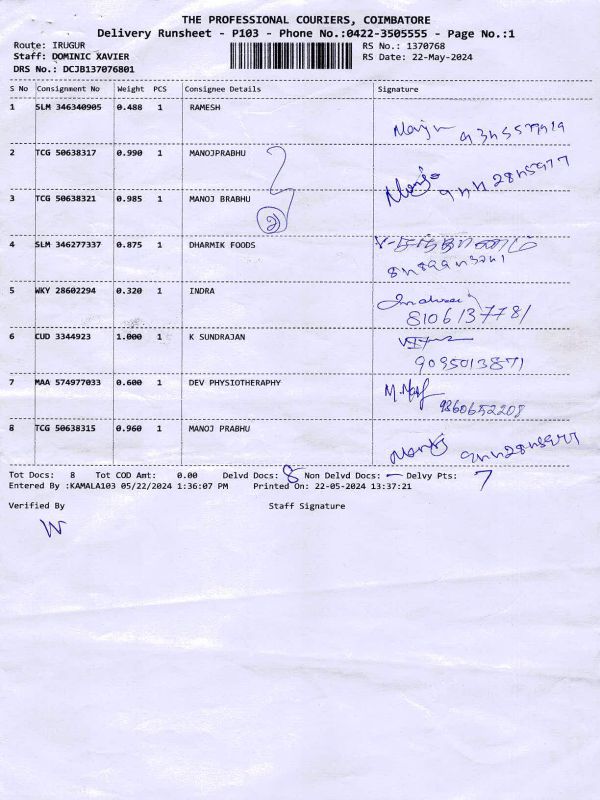 THE PROFESSIONAL COURIERS, COIMBATORE
Delivery Runsheet - P103 - Phone No.:0422-3505555 - Page No.:1
Route: IRUGUR RS No.: 1370768
Staff: DOMINIC XAVIER RS Date: 22-May-2024
DRS No.: DCJB137076801
S No Consignment No Weight PCS Consignee Details Signature
1 SLM 346340905 0.488 1 RAMESH
2 TCG 50638317 0.990 1 MANOJPRABHU
3 TCG 50638321 0.985 1 MANOJ BRABHU
2
4 SLM 346277337 0.875 1 DHARMIK FOODS
5 WKY 28602294 0.320 1 INDRA
8106137781
6 CUD 3344923 1.000 1 K SUNDRAJAN
9095013871
7 MAA 574977033 0.600 1 DEV PHYSIOTHERAPHY
9360652208
8 TCG 50638315 0.960 1 MANOJ PRABHU
Tot Docs: 8 Tot COD Amt: 0.00 Delvd Docs: 8 Non Delvd Docs: - Delvy Pts: 7
Entered By :KAMALA103 05/22/2024 1:36:07 PM Printed On: 22-05-2024 13:37:21
Verified By Staff Signature